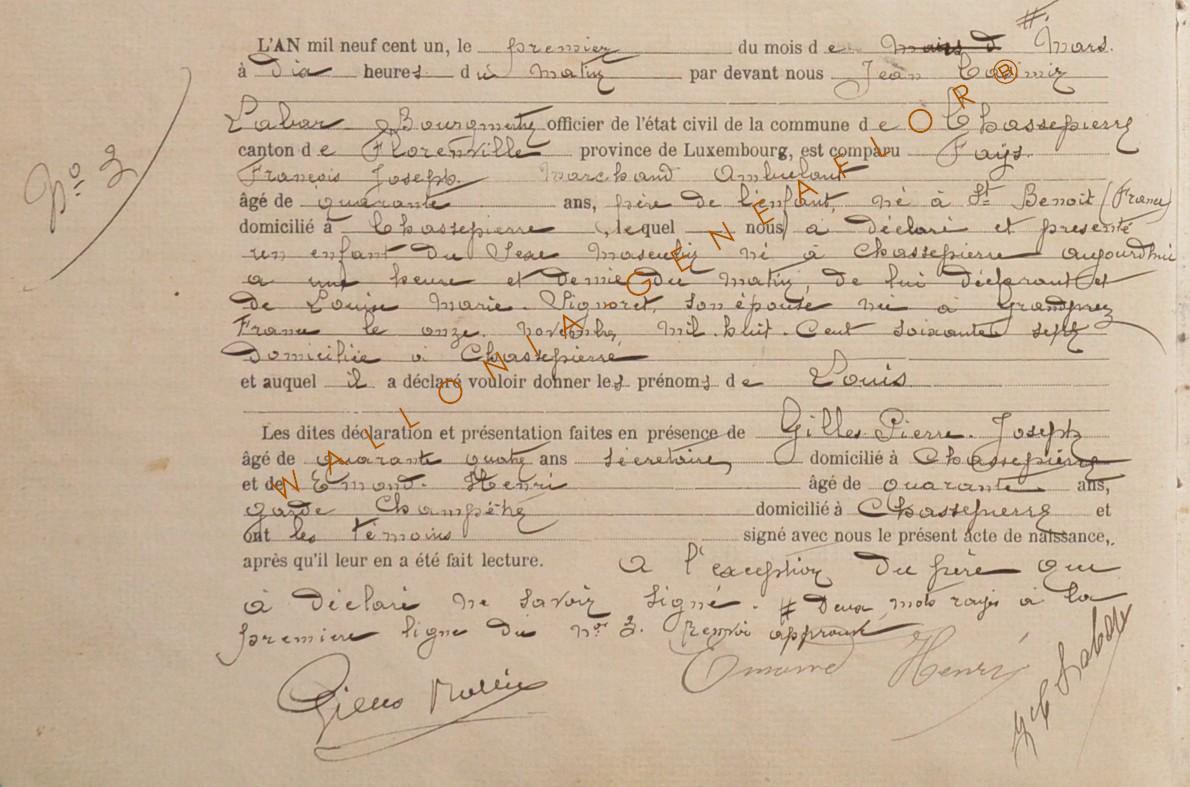 #.
L'AN mil neuf cent un, le premier du mois de mars d Mars.
à dix heures du matin par devant nous Jean
Labar Bourgmestre officier de l'état civil de la commune de Chassepierre
canton de Florenville province de Luxembourg, est comparu Fays.
François Joseph. Marchand Ambulant
âgé de quarante ans, père de l'enfant, né à St Benoit (France)
domicilié à Chassepierre (, lequel nous) a déclaré et présenté
un enfant du Sexe masculin né à Chassepierre aujourdhui
a une heure et demie du matin, de lui déclarant et
de Louise Marie. Signoret, son épouse née à Grandprez
France le onze. novembre, mil. huit. Cent soixante sept
domiciliée à Chassepierre
et auquel il a déclaré vouloir donner les prénoms de Louis
Les dites déclaration et présentation faites en présence de Gilles. Pierre. Joseph
âgé de quarante quatre ans secrétaire, domicilié à Chassepierre
et de Emond. Henri âgé de quarante ans,
garde Champêtre domicilié à Chassepierre et
ont les témoins signé avec nous le présent acte de naissance,
après qu'il leur en a été fait lecture. a l'exception du père qui
à déclaré ne savoir signé. # Deux mots rayés à la
première ligne du nº 3. Renvoi approuvé
Emond Henri
Nº 3
WALLONIA GENEALOR ®